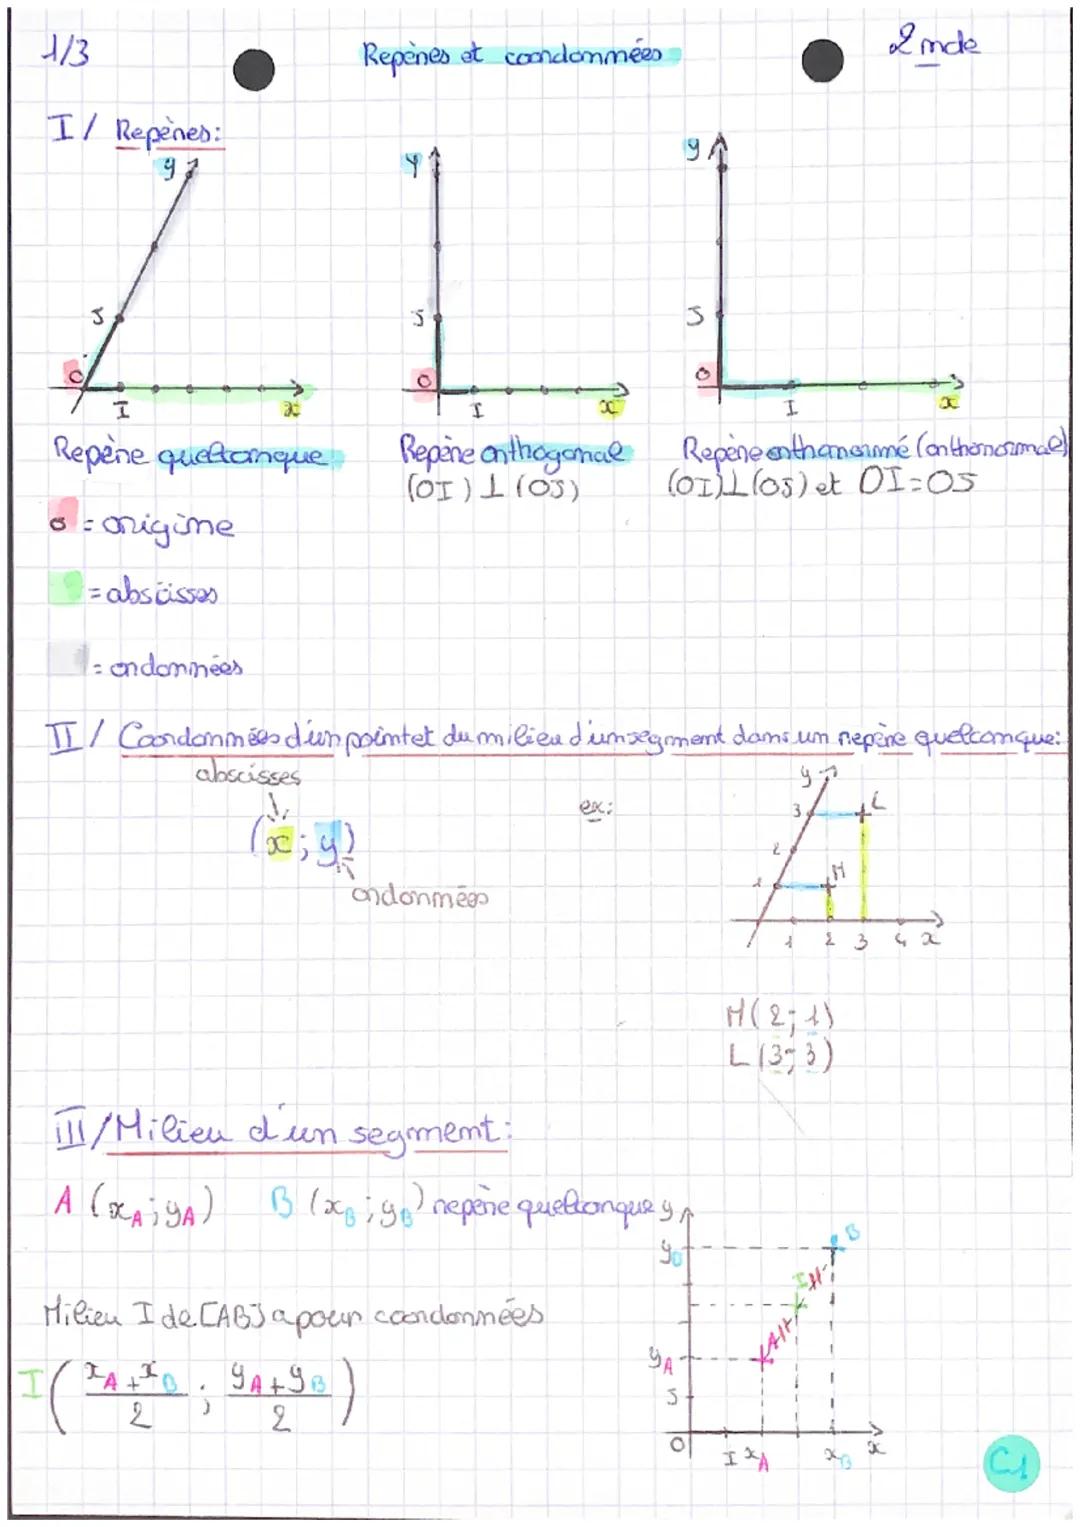 1/3 Repères et coordonnées 2nde
I/ Repères:
y y y
J J J
O O O
I x I x I x
Repère quelconque Repère orthogonal Repère orthonormé (orthonormal)
(OI) ⊥ (OJ) (OI)⊥(OJ) et OI=OJ
O = origine
= abscisses
= ordonnées
II/ Coordonnées d'un point et du milieu d'un segment dans un repère quelconque:
abscisses
(x ; y)
ordonnées
ex:
y
3 L
2
1 M
1 2 3 4 x
M(2; 1)
L(3; 3)
III/ Milieu d'un segment:
A (xA ; yA) B (xB ; yB) repère quelconque
Milieu I de [AB] a pour coordonnées
I( xA + xB / 2 ; yA + yB / 2 )
y
yB B
I
yA A
J
O I xA xB x
C1